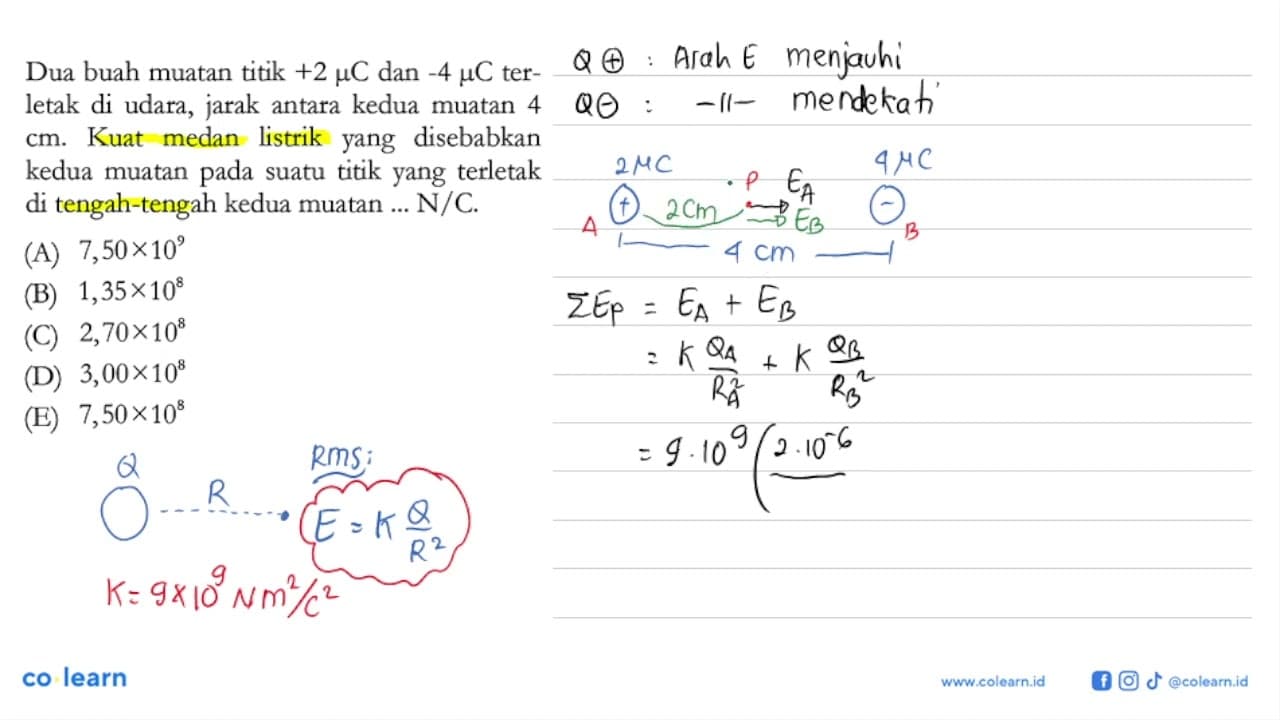 Dua buah muatan titik +2 μC dan -4 μC ter-
letak di udara, jarak antara kedua muatan 4
cm. Kuat medan listrik yang disebabkan
kedua muatan pada suatu titik yang terletak
di tengah-tengah kedua muatan ... N/C.
(A) 7,50×10⁹
(B) 1,35×10⁸
(C) 2,70×10⁸
(D) 3,00×10⁸
(E) 7,50×10⁸
Q
R
Rms:
E = K Q/R²
K = 9×10⁹ Nm²/C²
Q ⊕ : Arah E menjauhi
Q ⊖ : -||- mendekati
2 μC
4 μC
P
E_A
+
2 cm
E_B
-
A
B
4 cm
ΣEp = E_A + E_B
= K Q_A/R_A² + K Q_B/R_B²
= 9.10⁹ (2.10⁻⁶
co learn
www.colearn.id
@colearn.id